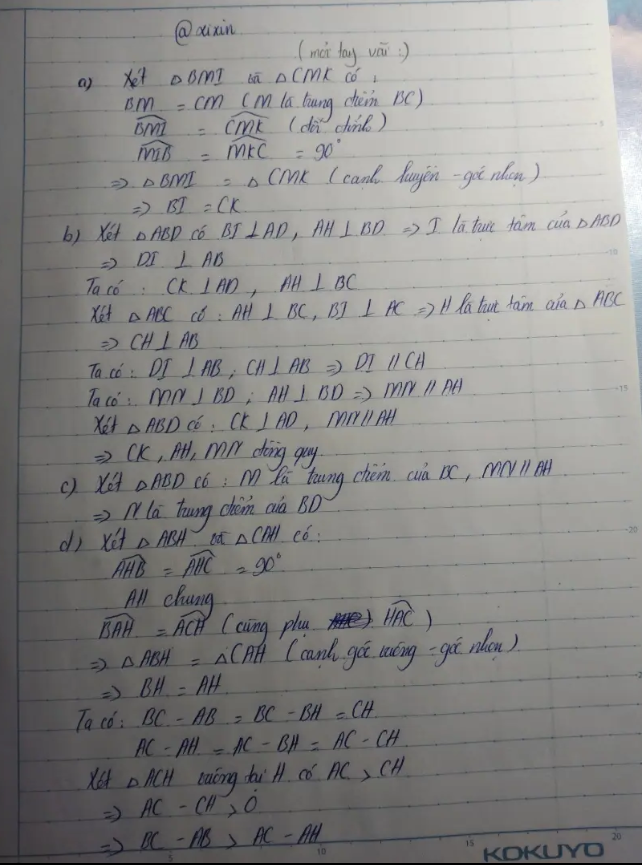 @xixin
(mỏi tay vãi :)
a) Xét △BMI và △CMK có :
BM = CM (M là trung điểm BC)
BMI = CMK (đối đỉnh)
MIB = MKC = 90°
=> △BMI = △CMK (cạnh huyền - góc nhọn)
=> BI = CK
b) Xét △ABD có BI ⊥ AD, AH ⊥ BD => I là trực tâm của △ABD
=> DI ⊥ AB
Ta có : CK ⊥ AD, AH ⊥ BC
Xét △ABC có : AH ⊥ BC, BI ⊥ AC => H là trực tâm của △ABC
=> CH ⊥ AB
Ta có : DI ⊥ AB, CH ⊥ AB => DI // CH
Ta có : MN ⊥ BD ; AH ⊥ BD => MN // AH
Xét △ABD có : CK ⊥ AD, MN // AH
=> CK, AH, MN đồng quy
c) Xét △ABD có : M là trung điểm của DC, MN // AH
=> N là trung điểm của BD
d) Xét △ABH và △CAH có :
AHB = AHC = 90°
AH chung
BAH = ACH (cùng phụ HAC)
=> △ABH = △CAH (cạnh góc vuông - góc nhọn)
=> BH = AH
Ta có : BC - AB = BC - BH = CH
AC - AH = AC - BH = AC - CH
Xét △ACH vuông tại H có AC > CH
=> AC - CH > 0
=> BC - AB > AC - AH
5
10
15
20
5
10
15
20
KOKUYO